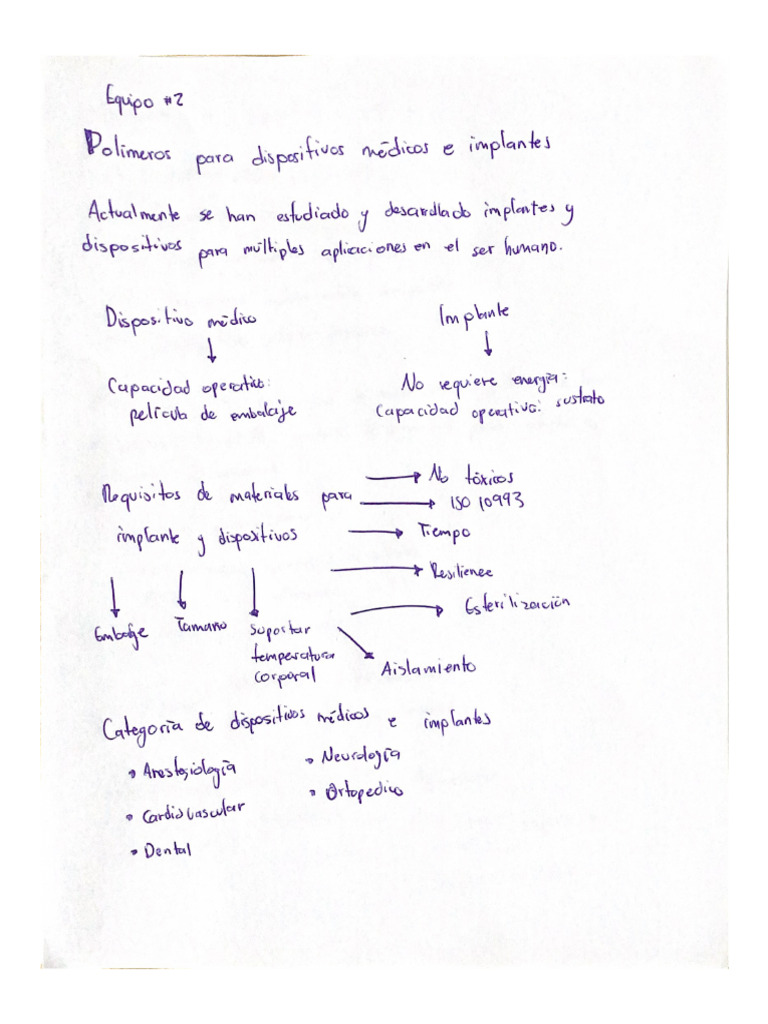 Equipo #2
Polimeros para dispositivos médicos e implantes
Actualmente se han estudiado y desarrollado implantes y
dispositivos para múltiples aplicaciones en el ser humano.
Dispositivo médico
Implante
Capacidad operativa:
película de embalaje
No requiere energía:
Capacidad operativa: sustrato
Requisitos de materiales para
implante y dispositivos
No tóxicos
ISO 10993
Tiempo
Resilience
Esterilización
Aislamiento
Embalaje
Tamaño
Soportar
temperatura
corporal
Categoría de dispositivos médicos e implantes
• Anestesiología
• Cardiovascular
• Dental
• Neurología
• Ortopedico